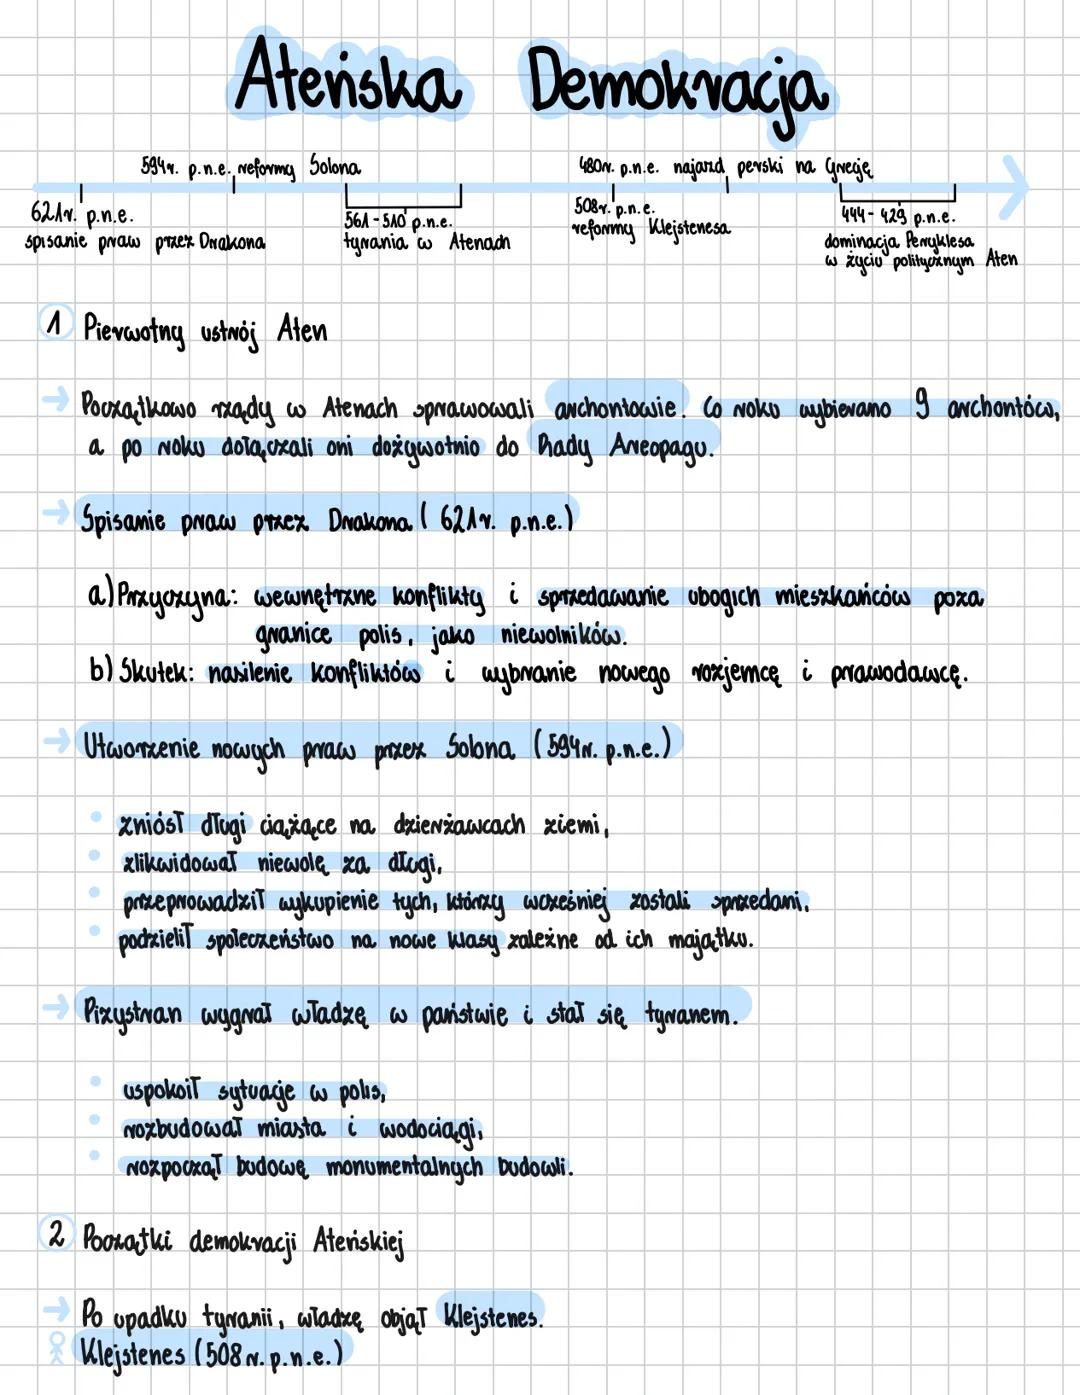 Ateńska Demokracja
594r. p.n.e. reformy Solona
480r. p.n.e. najazd perski na Grecję
621r. p.n.e.
spisanie praw przez Drakona
561-510 p.n.e.
tyrania w Atenach
508r. p.n.e.
reformy Klejstenesa
444-429 p.n.e.
dominacja Peryklesa
w życiu politycznym Aten
1 Pierwotny ustrój Aten
→ Początkowo rządy w Atenach sprawowali archontowie. Co roku wybierano 9 archontów,
a po roku dołączali oni dożywotnio do Rady Areopagu.
→ Spisanie praw przez Drakona ( 621r. p.n.e.)
a) Przyczyna: wewnętrzne konflikty i sprzedawanie ubogich mieszkańców poza
granice polis, jako niewolników.
b) Skutek: nasilenie konfliktów i wybranie nowego rozjemcę i prawodawcę.
→ Utworzenie nowych praw przez Solona (594r. p.n.e.)
• zniósł długi ciążące na dzierżawcach ziemi,
• zlikwidował niewolę za długi,
• przeprowadził wykupienie tych, którzy wcześniej zostali sprzedani,
• podzielił społeczeństwo na nowe klasy zależne od ich majątku.
→ Pizystrat wygrał władzę w państwie i stał się tyranem.
• uspokoił sytuacje w polis,
• rozbudował miasta i wodociągi,
• rozpoczął budowę monumentalnych budowli.
2 Początki demokracji Ateńskiej
→ Po upadku tyranii, władzę objął Klejstenes.
Klejstenes (508 r. p.n.e.)